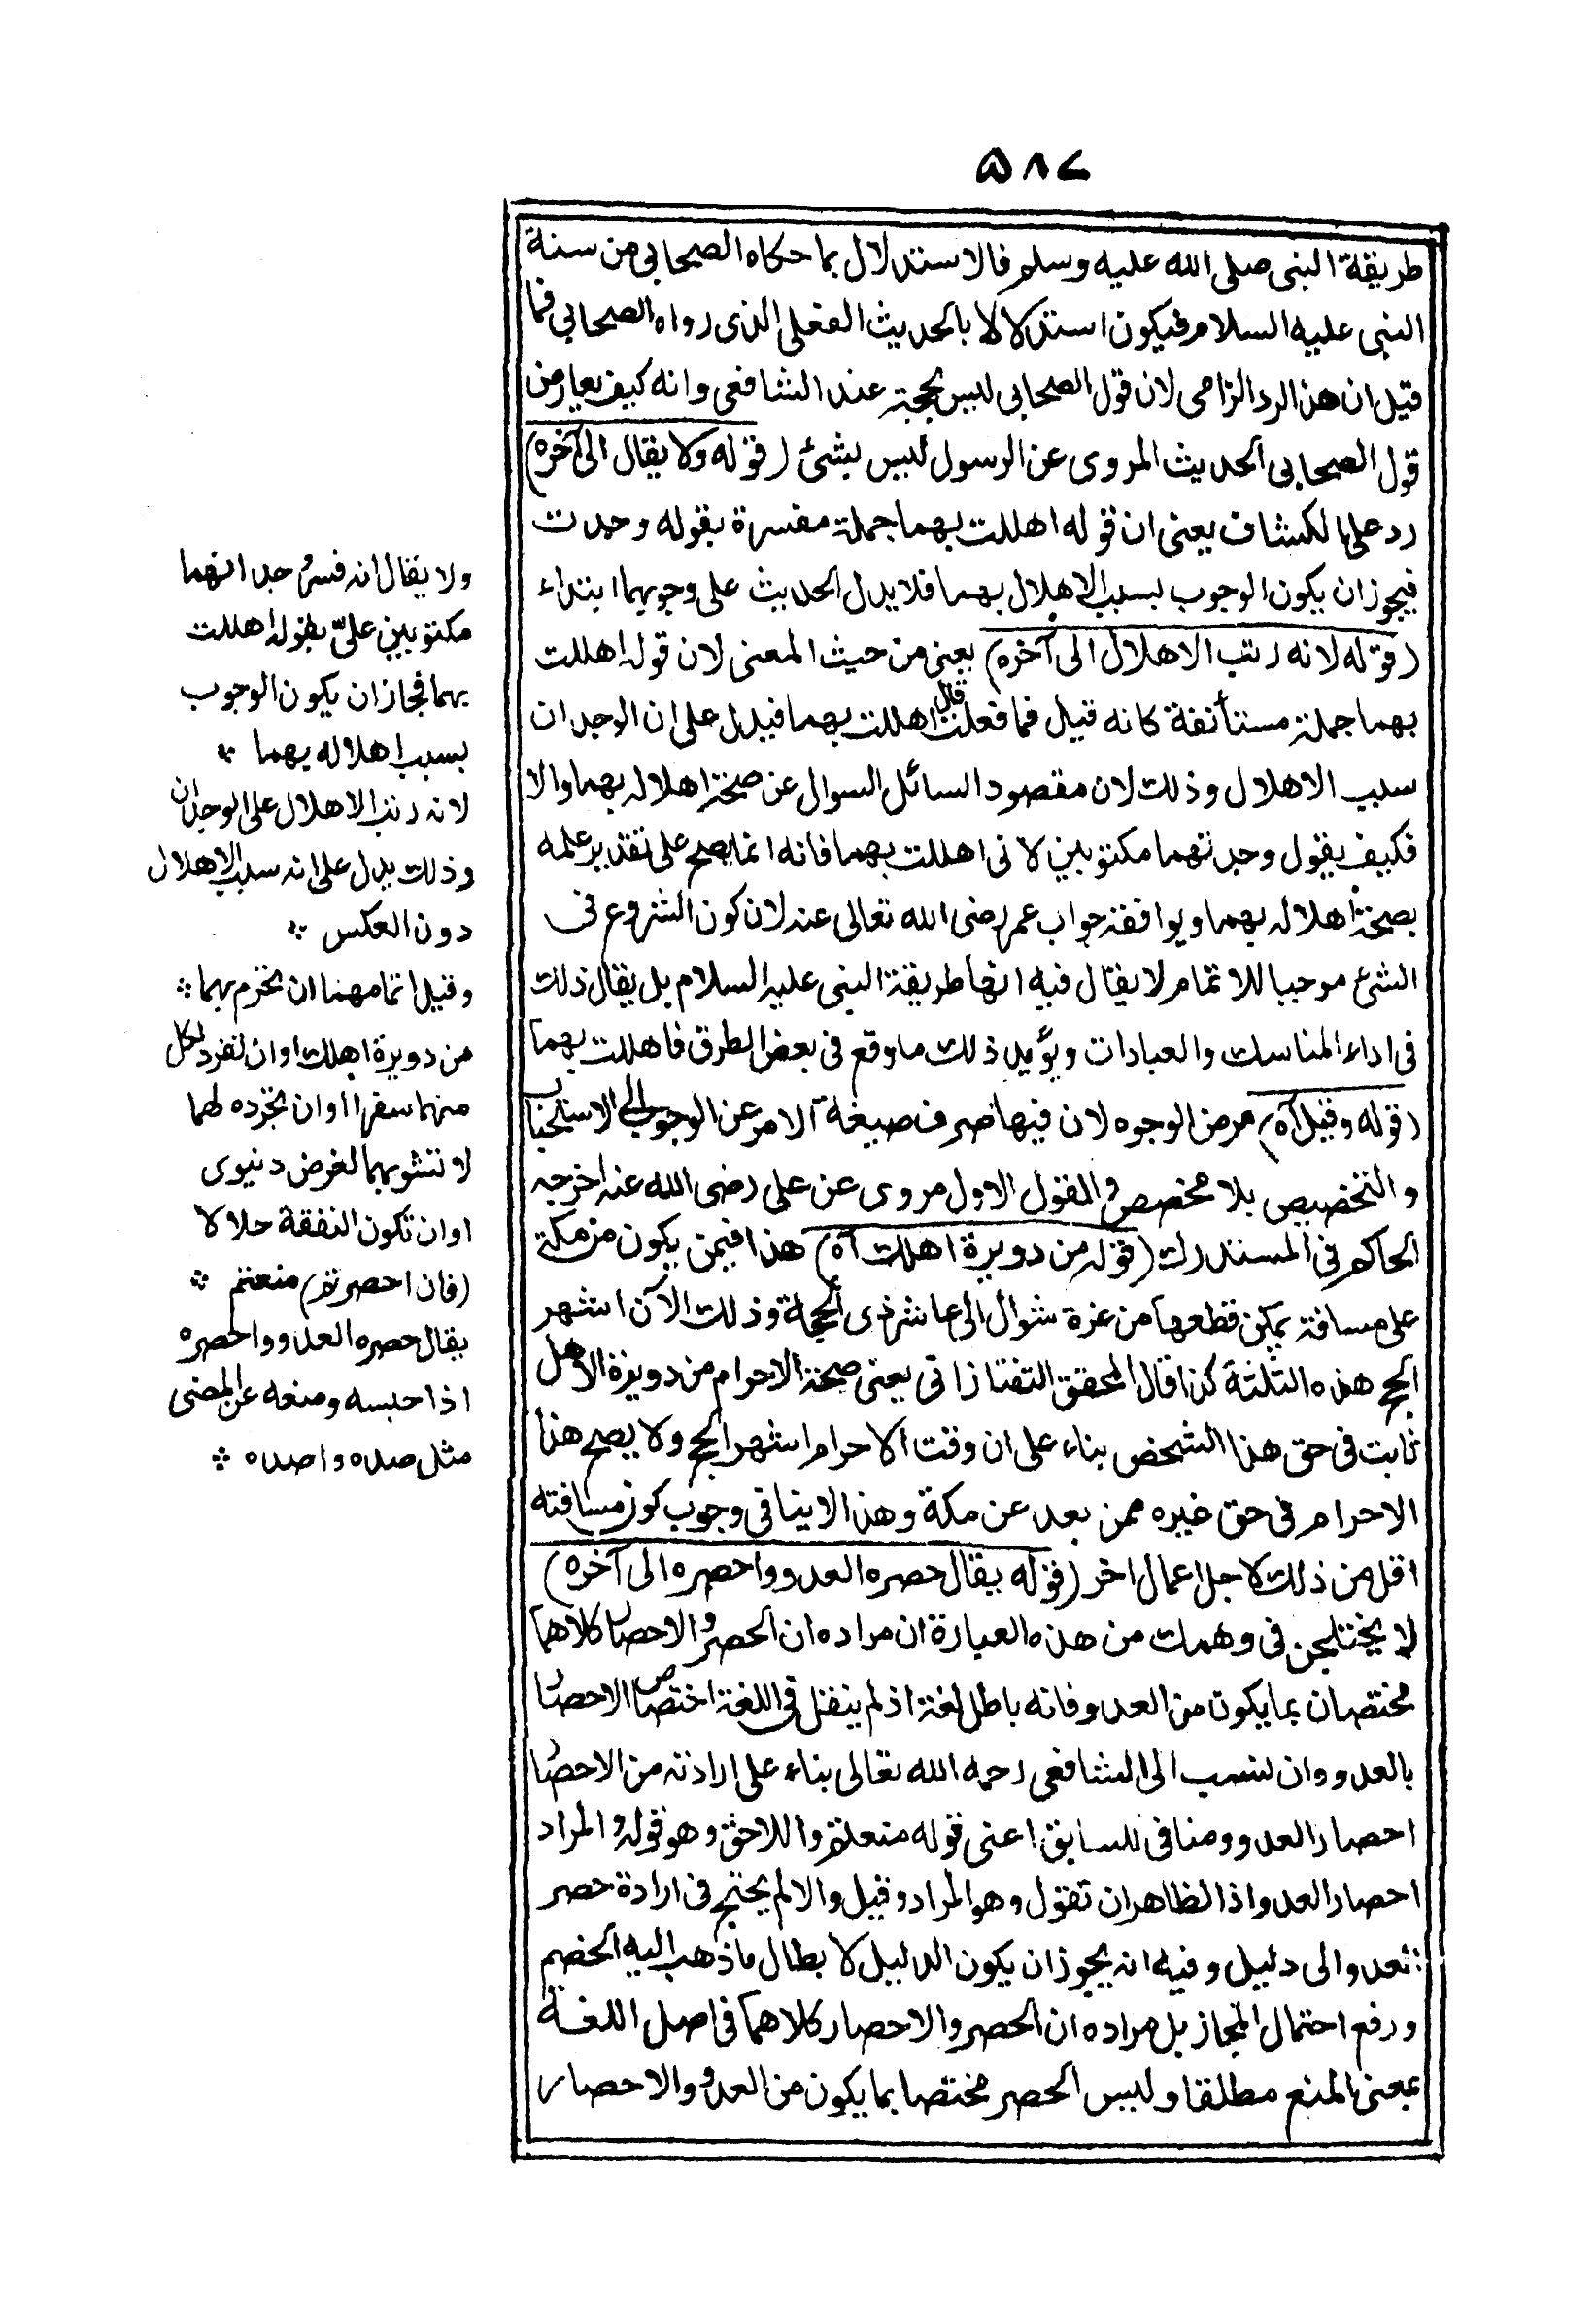 ۵۸۷
طريقة النبى صلى الله عليه وسلم فالاستدلال بما حكاه الصحابى من سنة
النبى عليه السلام فيكون استدلالا بالحديث الفعلى الذى رواه الصحابى فما
قيل ان هذا الرد الزامى لان قول الصحابى ليس بحجة عند الشافعى وانه كيف يعارض
قول الصحابى الحديث المروى عن الرسول ليس بشئ (قوله ولا يقال الى آخره)
رد على الكشاف يعنى ان قوله اهللت بهما جملة مفسرة بقوله وجدت
فيجوز ان يكون الوجوب بسبب الاهلال بهما فلا يدل الحديث على وجوبهما ابتداء
(قوله لانه رتب الاهلال الى آخره) يعنى من حيث المعنى لان قوله اهللت
بهما جملة مستأنفة كانه قيل فما فعلت قال اهللت بهما فيدل على ان الوجدان
سبب الاهلال وذلك لان مقصود السائل السوال عن صحة اهلاله بهما والا
فكيف يقول وجدتهما مكتوبين لانى اهللت بهما فانه انما يصح على تقدير علمه
بصحة اهلاله بهما ويوافقه جواب عمر رضى الله تعالى عنه لان كون الشروع فى
الشئ موجبا للاتمام لا يقال فيه انها طريقة النبى عليه السلام بل يقال ذلك
فى اداء المناسك والعبادات ويؤيد ذلك ما وقع فى بعض الطرق فاهللت بهما
(قوله وقيل آه) مرض الوجوه لان فيها صرف صيغة الامر عن الوجوب الى الاستحباب
والتخصيص بلا مخصص والقول الاول مروى عن على رضى الله عنه اخرجه
الحاكم فى المستدرك (قوله من دويرة اهلك آه) هذا فيمن يكون من مكة
على مسافة يمكن قطعها من غرة شوال الى عاشر ذى الحجة وذلك الآن اشهر
الحج هذه الثلثة كذا قال المحقق التفتازانى يعنى صحة الاحرام من دويرة الاهل
ثابت فى حق هذا الشخص بناء على ان وقت الاحرام اشهر الحج ولا يصح هذا
الاحرام فى حق غيره ممن بعد عن مكة وهذا لا ينافى وجوب كون مسافته
اقل من ذلك لاجل اعمال اخر (قوله يقال حصره العدو واحصره الى آخره)
لا يختلجن فى وهمك من هذه العبارة ان مراده ان الحصر والاحصار كلاهما
مختصان بما يكون من العدو فانه باطل لغة اذ لم ينقل فى اللغة اختصاص الاحصار
بالعدو وان نسب الى الشافعى رحمه الله تعالى بناء على ارادته من الاحصار
احصار العدو ومنافى للسابق اعنى قوله منعتم واللاحق وهو قوله والمراد
احصار العدو اذ الظاهر ان تقول وهو المراد وقيل والا لم يحتج فى ارادة حصر
العدو الى دليل وفيه انه يجوز ان يكون الدليل لابطال ما ذهب اليه الخصم
ورفع احتمال المجاز بل مراده ان الحصر والاحصار كلاهما فى اصل اللغة
بمعنى المنع مطلقا وليس الحصر مختصا بما يكون من العدو والاحصار
ولا يقال انه فسر وجدانهما
مكتوبين علىّ بقوله اهللت
بهما فجاز ان يكون الوجوب
بسبب اهلاله بهما
لانه رتب الاهلال على الوجدان
وذلك يدل على انه سبب الاهلال
دون العكس
وقيل اتمامهما ان تحرم بهما
من دويرة اهلك او ان تفرد لكل
منهما سفرا او ان تجرده لهما
لا تشوبهما لغرض دنيوى
او ان تكون النفقة حلالا
(فان احصرتم) منعتم
يقال حصره العدو واحصره
اذا حبسه ومنعه عن المضى
مثل صده واصده